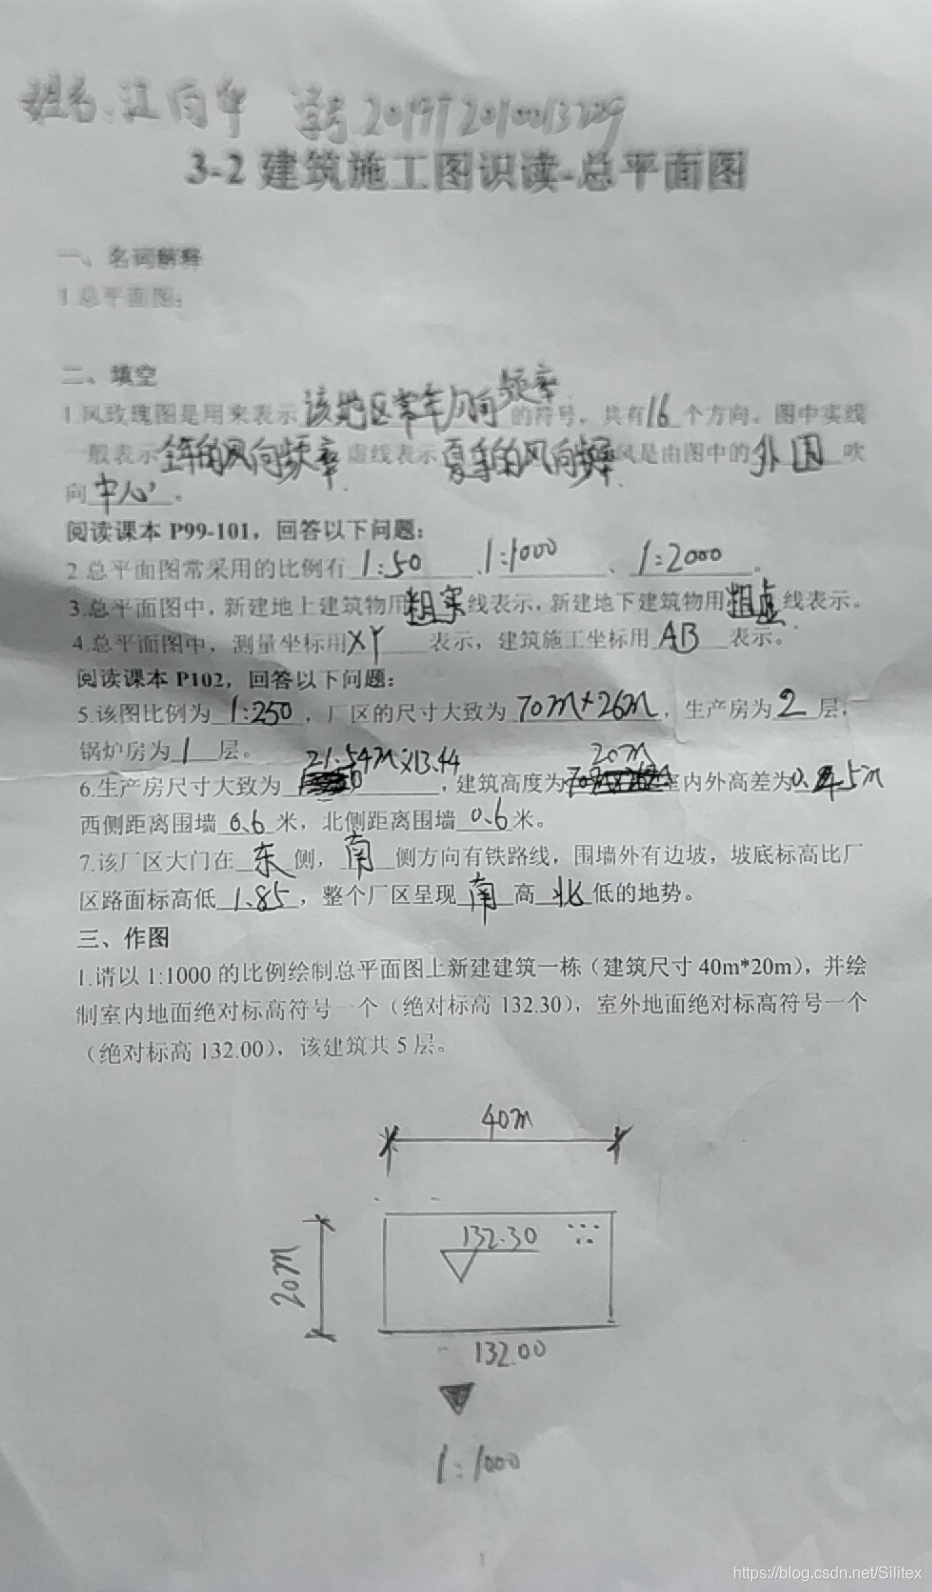 姓名:江向华 学号201912010013229
3-2 建筑施工图识读-总平面图
一、名词解释
1 总平面图:
二、填空
1.风玫瑰图是用来表示该地区常年风向频率的符号，共有16个方向。图中实线
一般表示全年的风向频率 虚线表示夏季的风向频率 风是由图中的外围吹
向中心。
阅读课本 P99-101，回答以下问题:
2.总平面图常采用的比例有 1:50 、1:1000 、 1:2000 。
3.总平面图中，新建地上建筑物用粗实线表示，新建地下建筑物用粗虚线表示。
4.总平面图中，测量坐标用XY 表示，建筑施工坐标用 AB 表示。
阅读课本 P102，回答以下问题:
5.该图比例为 1:250 ，厂区的尺寸大致为 70m*26m，生产房为 2 层，
锅炉房为 1 层。
6.生产房尺寸大致为 21.54m×13.44 ，建筑高度为 20m 室内外高差为0. 5m
西侧距离围墙 6.6 米，北侧距离围墙 0.6 米。
7.该厂区大门在 东 侧， 南 侧方向有铁路线，围墙外有边坡，坡底标高比厂
区路面标高低 1.85 ，整个厂区呈现 南 高 北 低的地势。
三、作图
1.请以 1:1000 的比例绘制总平面图上新建建筑一栋（建筑尺寸 40m*20m），并绘
制室内地面绝对标高符号一个（绝对标高 132.30），室外地面绝对标高符号一个
（绝对标高 132.00），该建筑共 5 层。
40m
132.30
20m
132.00
1:1000
1
https://blog.csdn.net/Silitex